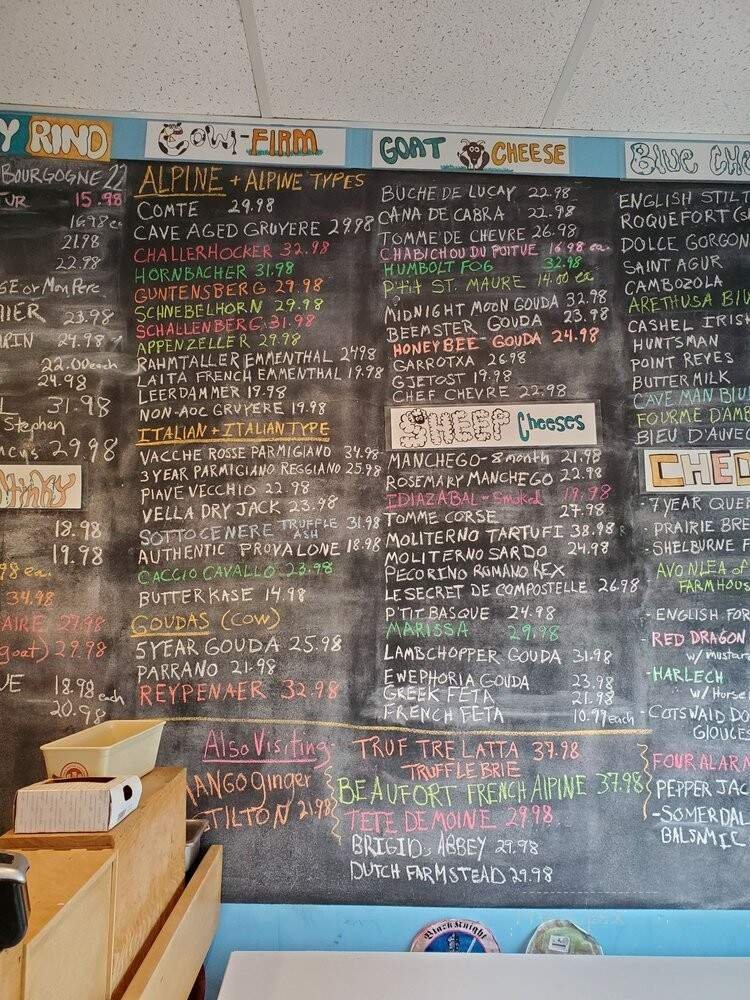 Y RIND
BOURGOGNE 22
TUR 15.98
16.98 ea
21.98
22.98
or Mon Pere
IER 23.98
24.98
22.00 each
24.98
L 31.98
Stephen
29.98
18.98
19.98
98 ea.
34.98
AIRE 27.98
goat) 29.98
VE 18.98 each
20.98
COW-FIRM
ALPINE + ALPINE TYPES
COMTE 29.98
CAVE AGED GRUYERE 29.98
CHALLERHOCKER 32.98
HORNBACHER 31.98
GUNTENSBERG 29.98
SCHNEBELHORN 29.98
SCHALLENBERG 31.98
APPENZELLER 29.98
RAHMTALLER EMMENTHAL 24.98
LAITA FRENCH EMMENTHAL 19.98
LEERDAMMER 19.98
NON-AOC GRUYERE 19.98
ITALIAN + ITALIAN TYPE
VACCHE ROSSE PARMIGIANO 34.98
3 YEAR PARMIGIANO REGGIANO 25.98
PIAVE VECCHIO 22.98
VELLA DRY JACK 23.98
SOTTOCENERE TRUFFLE ASH 31.98
AUTHENTIC PROVALONE 18.98
CACCIO CAVALLO 23.98
BUTTERKASE 14.98
GOUDAS (COW)
5 YEAR GOUDA 25.98
PARRANO 21.98
REYPENAER 32.98
GOAT CHEESE
BUCHE DE LUCAY 22.98
CANA DE CABRA 22.98
TOMME DE CHEVRE 26.98
CHABICHOU DU POITUE 16.98 ea.
HUMBOLT FOG 32.98
P'tit ST. MAURE 14.00 ea
MIDNIGHT MOON GOUDA 32.98
BEEMSTER GOUDA 23.98
HONEY BEE GOUDA 24.98
GARROTXA 26.98
GJETOST 19.98
CHEF CHEVRE 22.98
SHEEP Cheeses
MANCHEGO-8 month 21.98
ROSEMARY MANCHEGO 22.98
IDIAZABAL-Smoked 19.98
TOMME CORSE 27.98
MOLITERNO TARTUFI 38.98
MOLITERNO SARDO 24.98
PECORINO ROMANO REX
LE SECRET DE COMPOSTELLE 26.98
P'TIT BASQUE 24.98
MARISSA 29.98
LAMBCHOPPER GOUDA 31.98
EWEPHORIA GOUDA 23.98
GREEK FETA 21.98
FRENCH FETA 10.99 each
BLUE CHE
ENGLISH STILT
ROQUEFORT (S
DOLCE GORGON
SAINT AGUR
CAMBOZOLA
ARETHUSA BLU
CASHEL IRISH
HUNTSMAN
POINT REYES
BUTTERMILK
CAVE MAN BLU
FOURME D'AM
BLEU D'AUVE
CHED
- 7 YEAR QUE
- PRAIRIE BRE
- SHELBURNE F
AVONLEA of
FARMHOUS
- ENGLISH FOR
- RED DRAGON
w/ mustar
- HARLECH
w/ Horse
- COTSWALD DO
GLOUCES
FOUR ALAR
PEPPER JAC
- SOMERDAL
BALSAMIC
Also Visiting
MANGO ginger
STILTON 21.98
TRUF TRE LATTA 37.98
TRUFFLE BRIE
BEAUFORT FRENCH ALPINE 37.98
TETE DE MOINE 29.98
BRIGID'S ABBEY 29.98
DUTCH FARMSTEAD 29.98
Black Knight